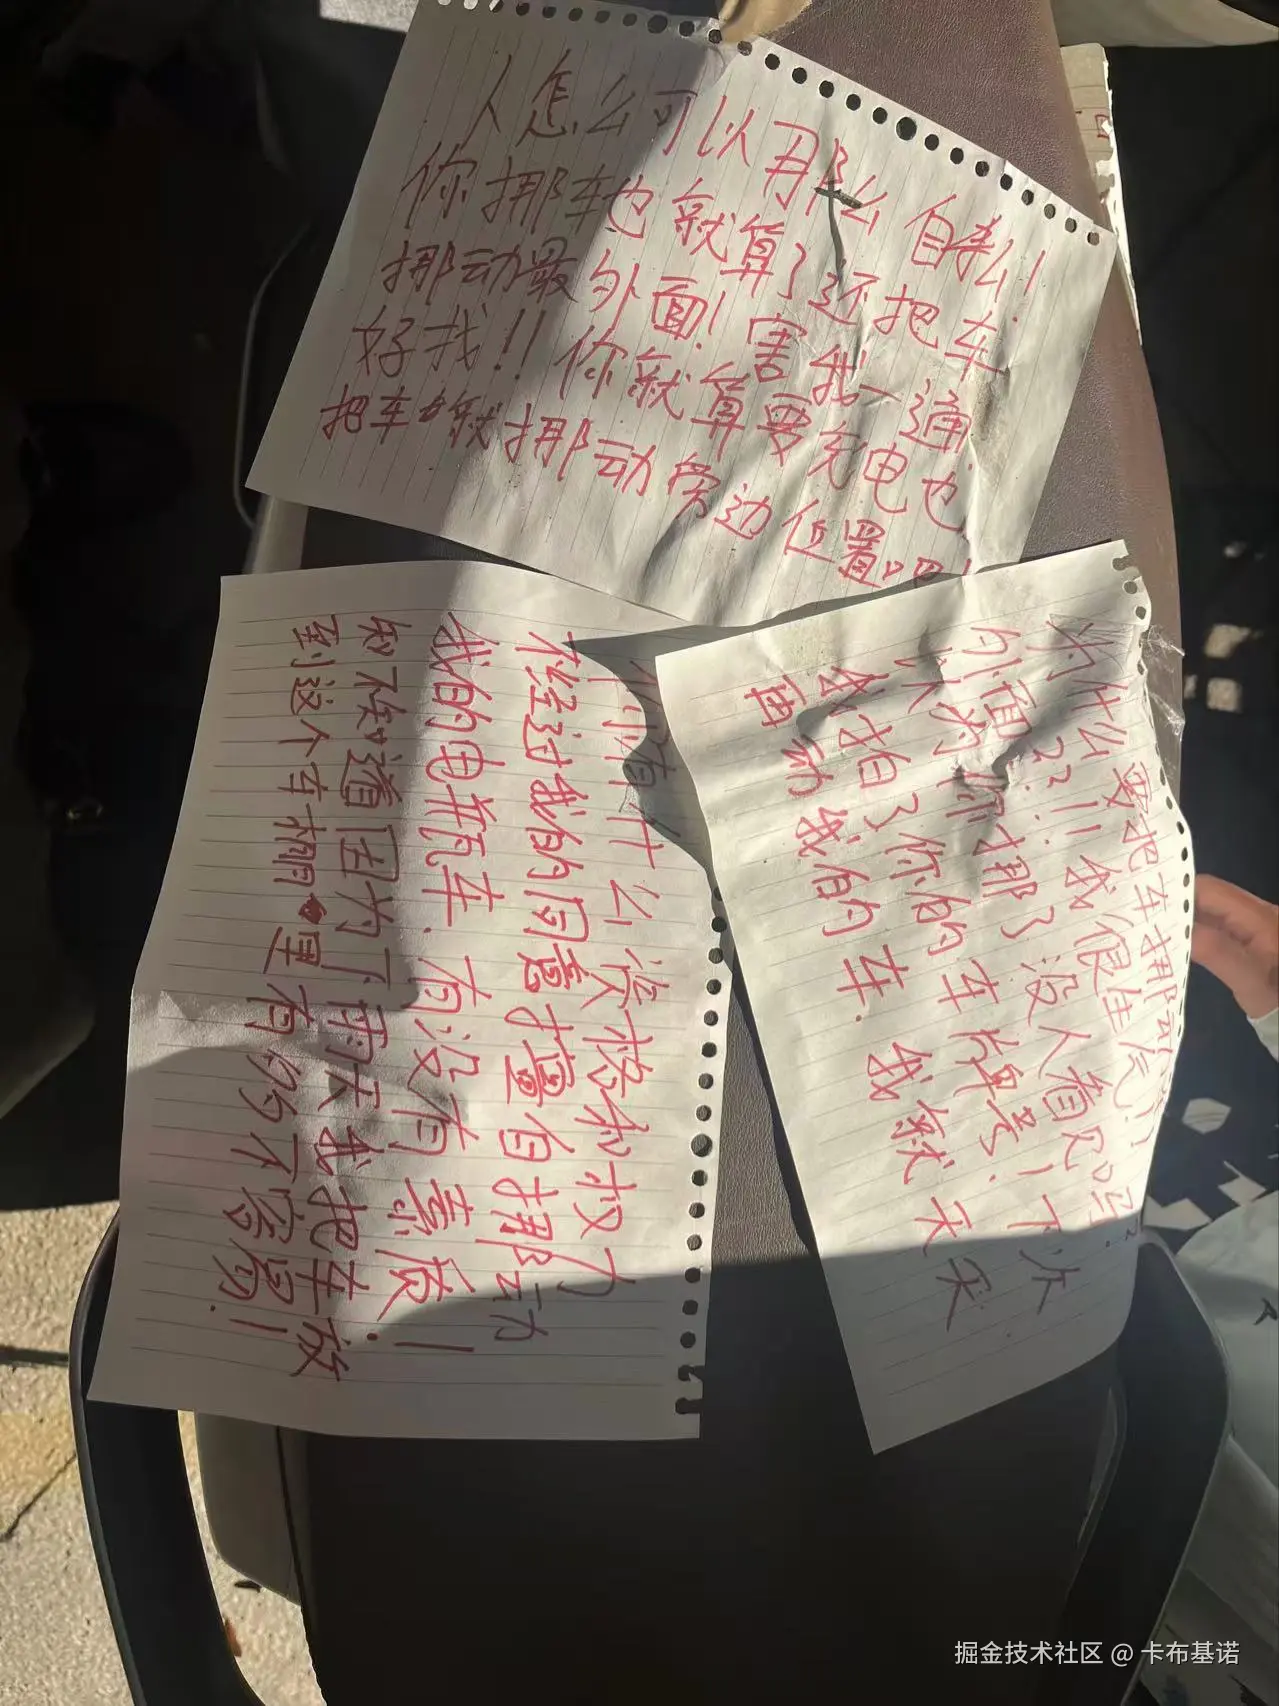 人怎么可以那么自私!!
你挪车也就算了还把车
挪动最外面! 害我一通
好找!! 你就算要充电也
把车就挪动旁边位置吧!
你有什么资格和权力
不经过我的同意擅自挪动
我的电瓶车. 有没有素质.!
知不知道因为下雨天我把车放
到这个车棚里有多不容易.!
为什么要把车挪
外面??!! 我很生气!!
你挪了没人看见吗??
我拍了你的车牌号! 下次
再动我的车. 我就天天
掘金技术社区 @ 卡布基诺